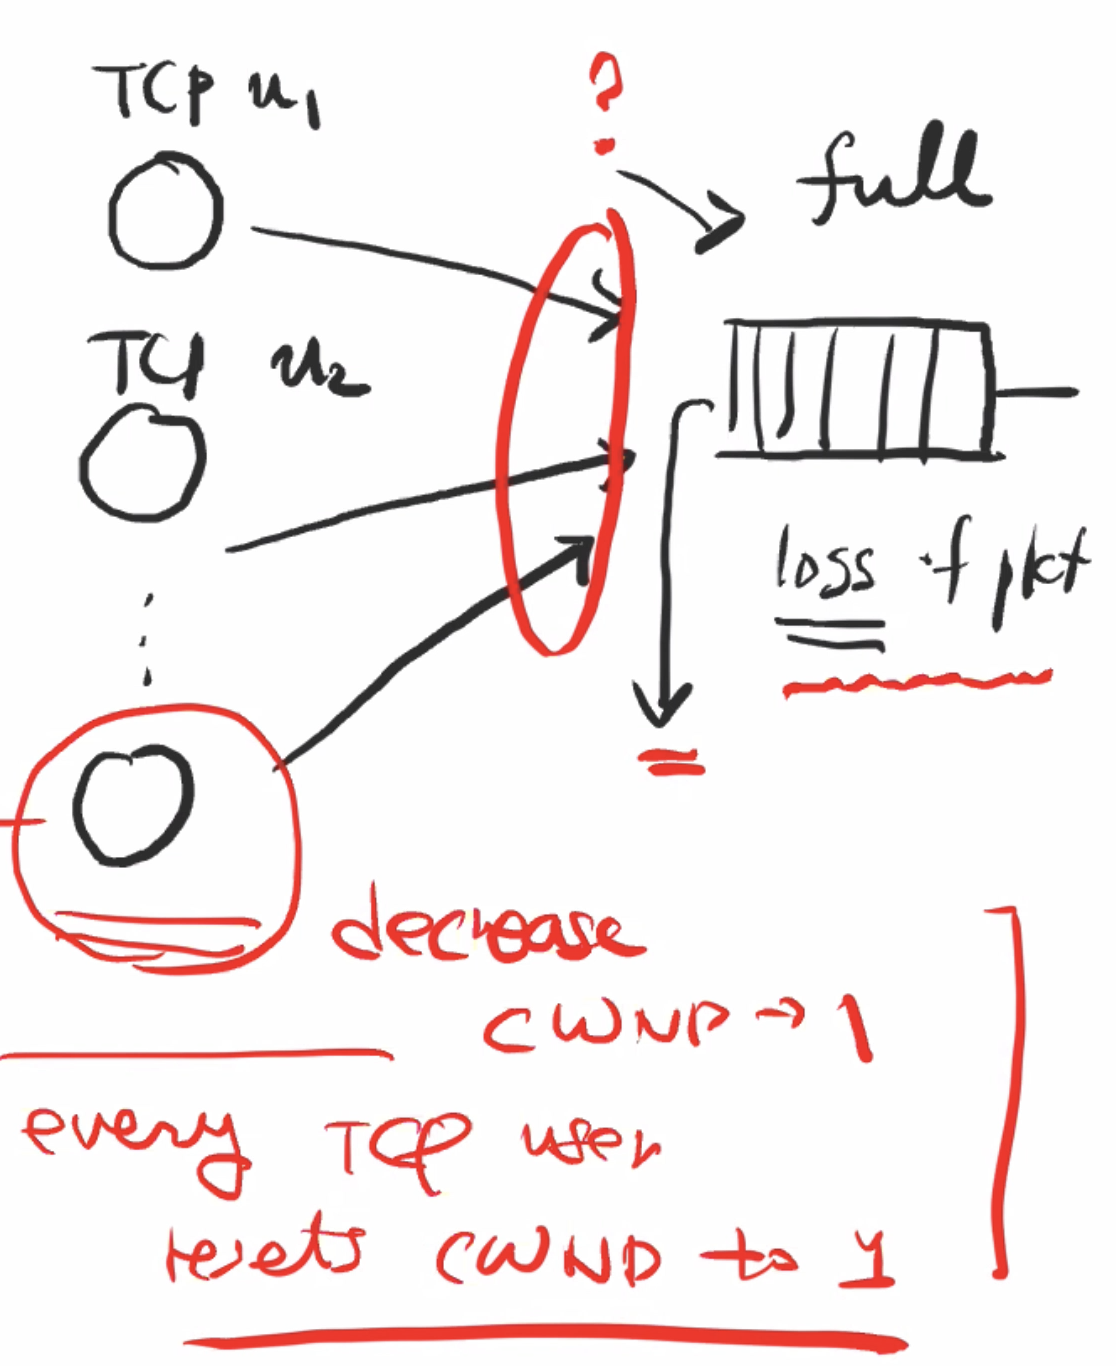 TCP u1
?
full
TCP u2
loss of pkt
decrease
CWND → 1
every TCP user
resets CWND to 1